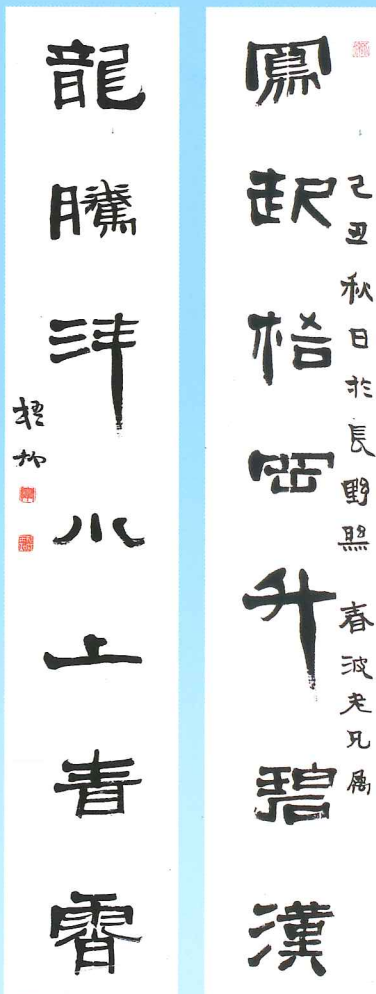 鳳起梧岡升碧漢
己丑秋日於長野 春波老兄屬
龍騰上青霄